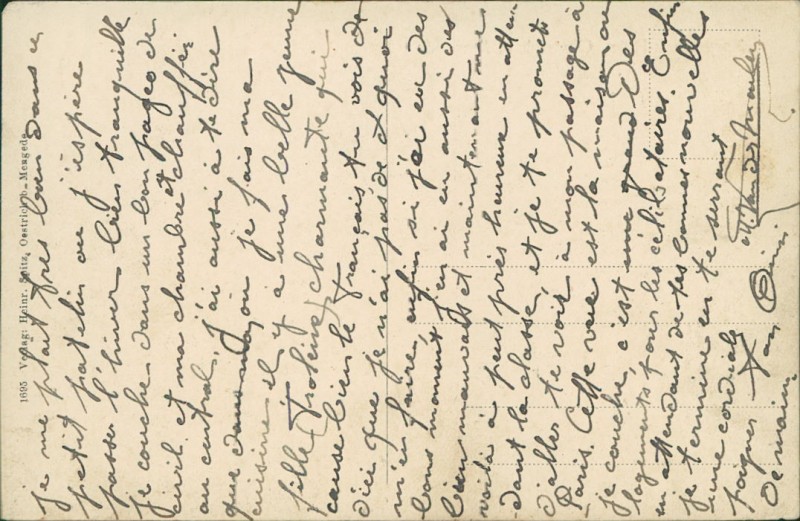 je me plait très bien dans ce
petit patelin ou j'espère
passer l'hiver bien tranquille
je couche dans un bon page de
civil et ma chambre et chauffée
au central, j'ai aussi à te dire
que dans ou je fais ma
cuisine il y a une belle jeune
fille charmante qui
cause bien le français tu vois de
d'ici que je n'ai pas de quoi
m'en faire, enfin si j'ai eu des
bons moments j'en ai eu aussi des
bien mauvais et maintenant me
voilà à peut près heureux en atten
dant la classe, et je te promets
d'aller te voir à mon passage à
Paris. Cette vue est la maison ou
je couche, c'est une grand Des
logements pour les célibataires. Enfin
en attendant de tes bonnes nouvelles
je termine en te serrant
une cordiale
poignée
De main
Ton Ami
1695 Verlag: Heinr. Seitz, Oestrich b. Mengede